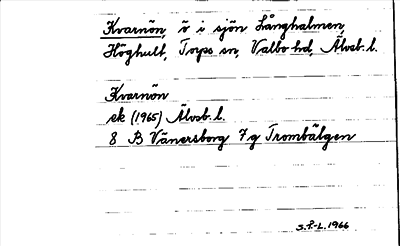 Kvarnön, ö i sjön Långhalmen,
Höghult, Torps sn, Valbo hd, Älvsb. l.
Kvarnön
ek (1965) Älvsb. l.
8 B Vänersborg 7g Trombälgen
S.F.-L. 1966